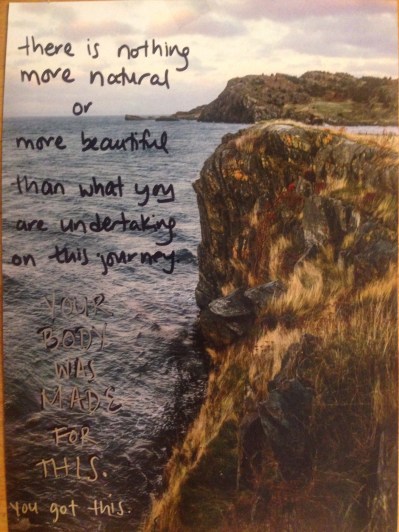 there is nothing
more natural
or
more beautiful
than what you
are undertaking
on this journey
YOUR
BODY
WAS
MADE
FOR
THIS.
you got this.